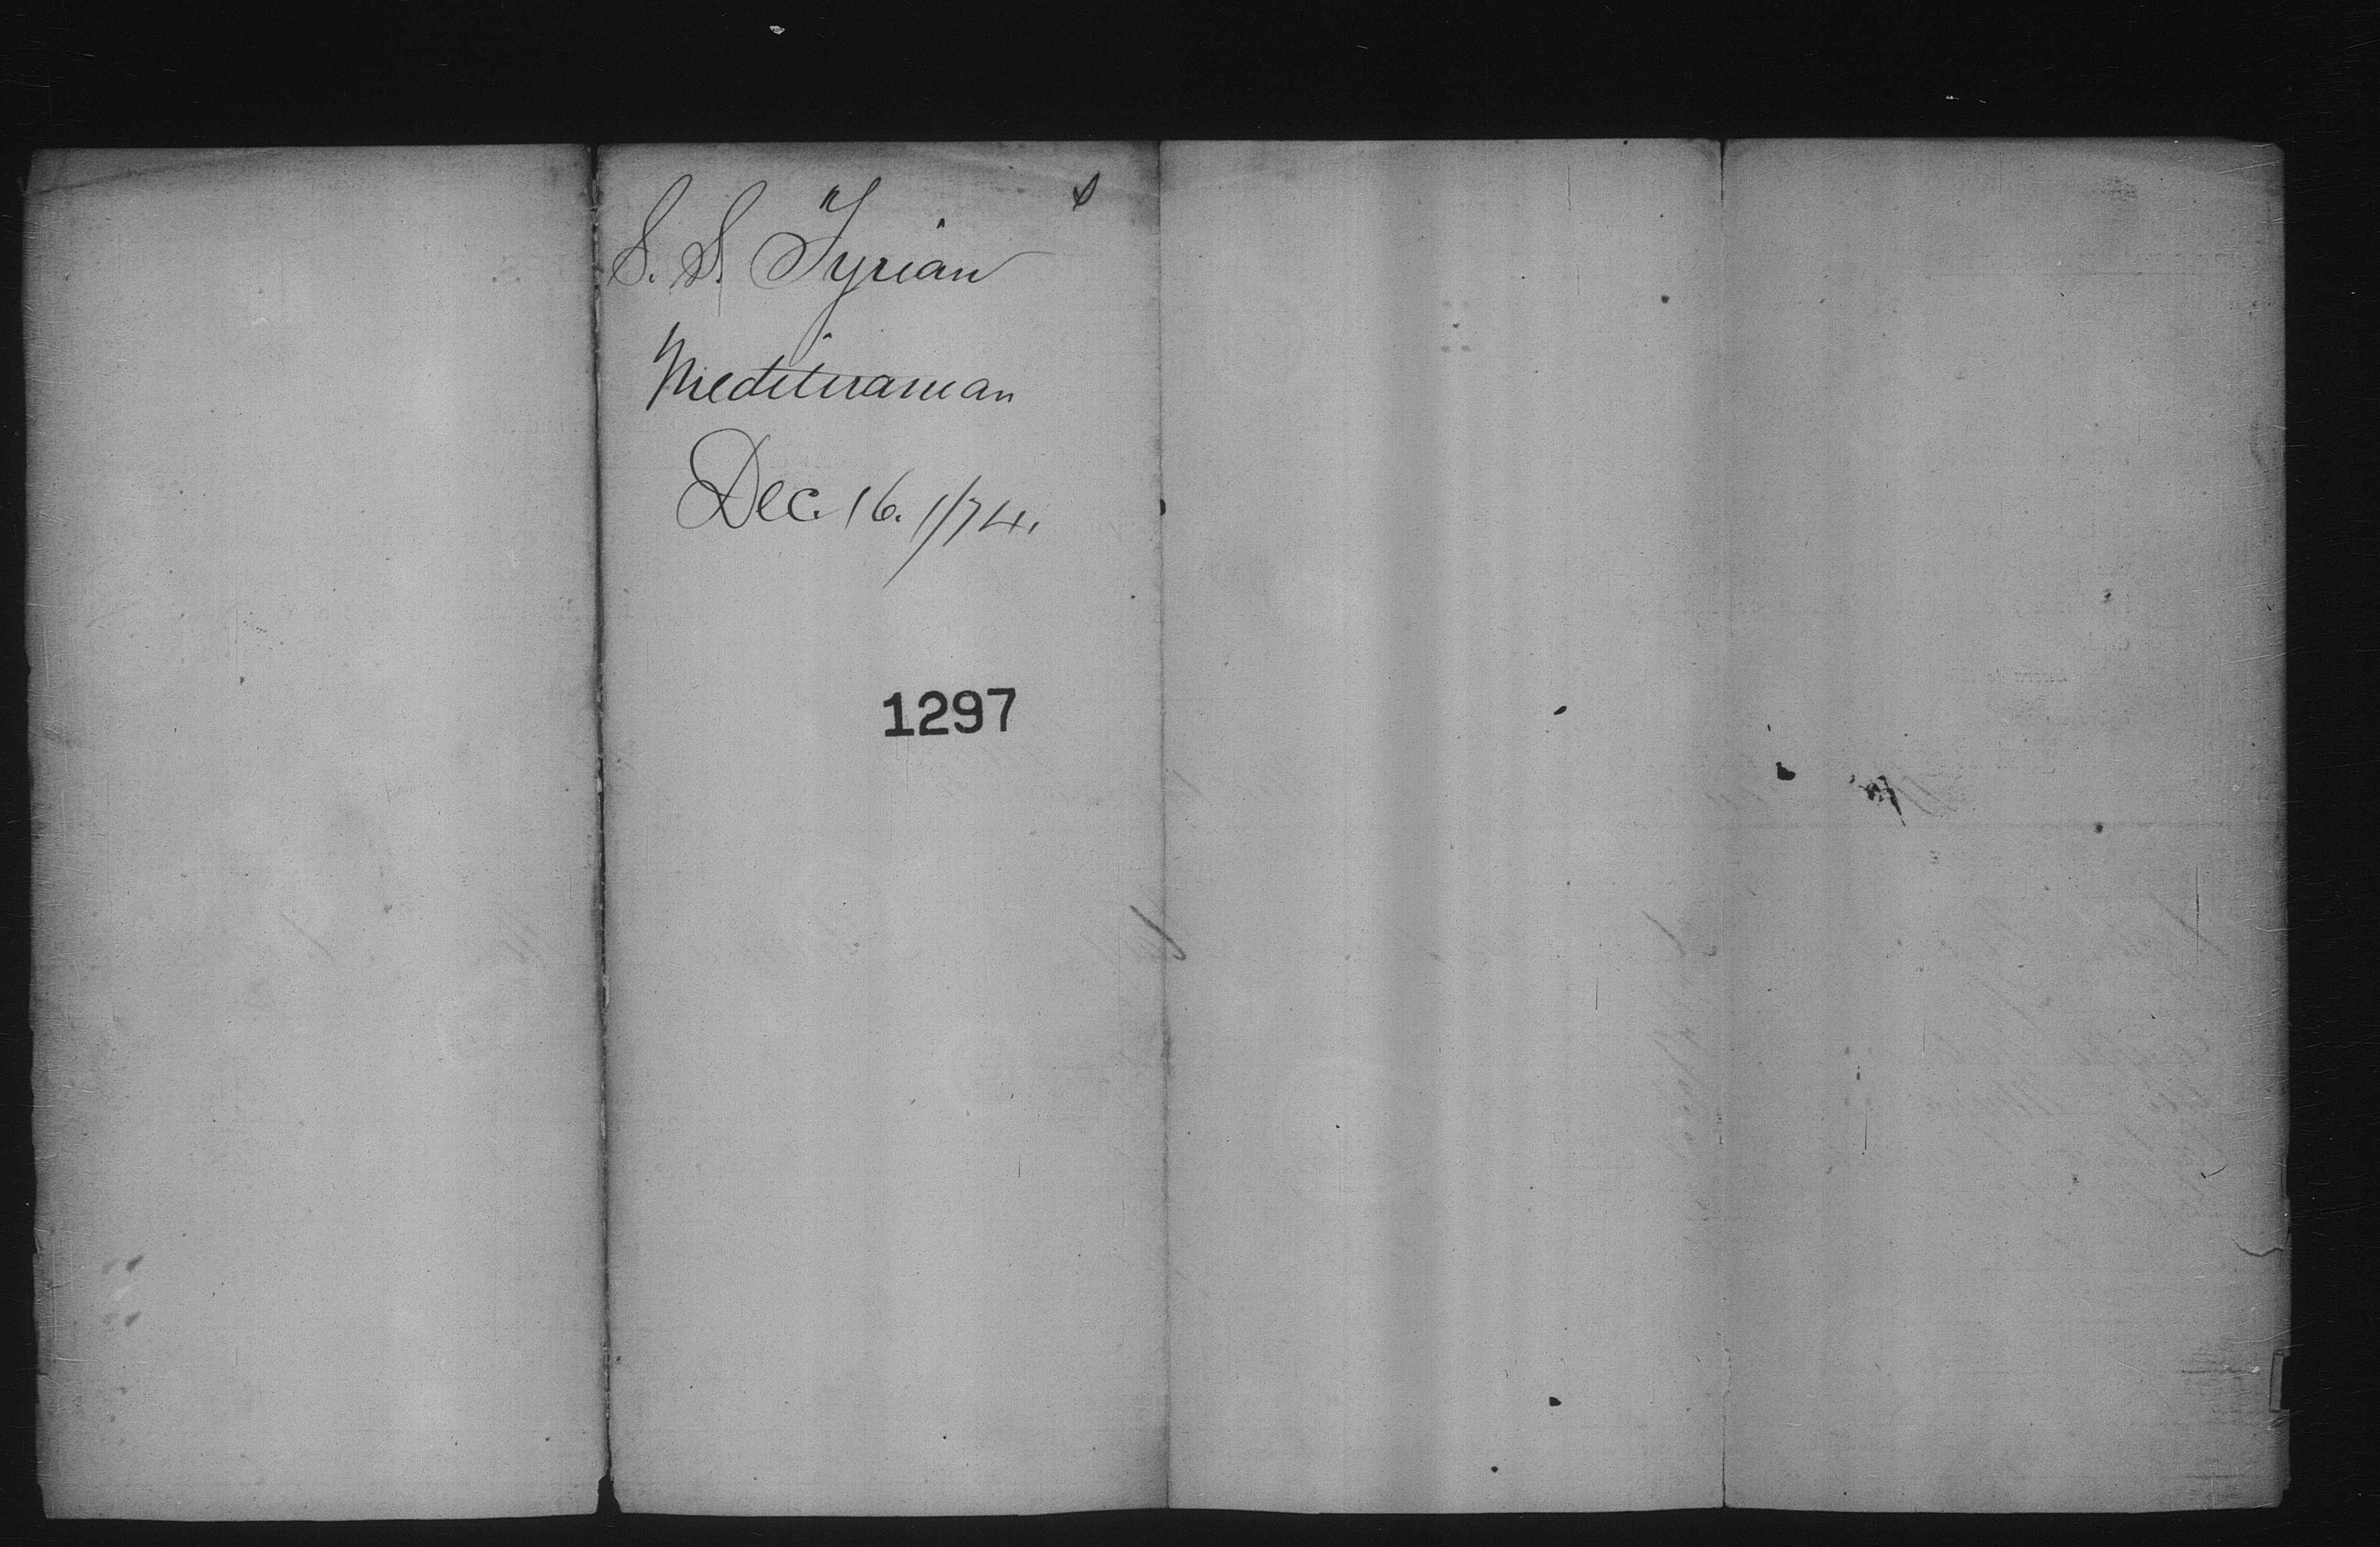 S. S. Tyrian
Mediteranean
Dec. 16. 1/74.
1297